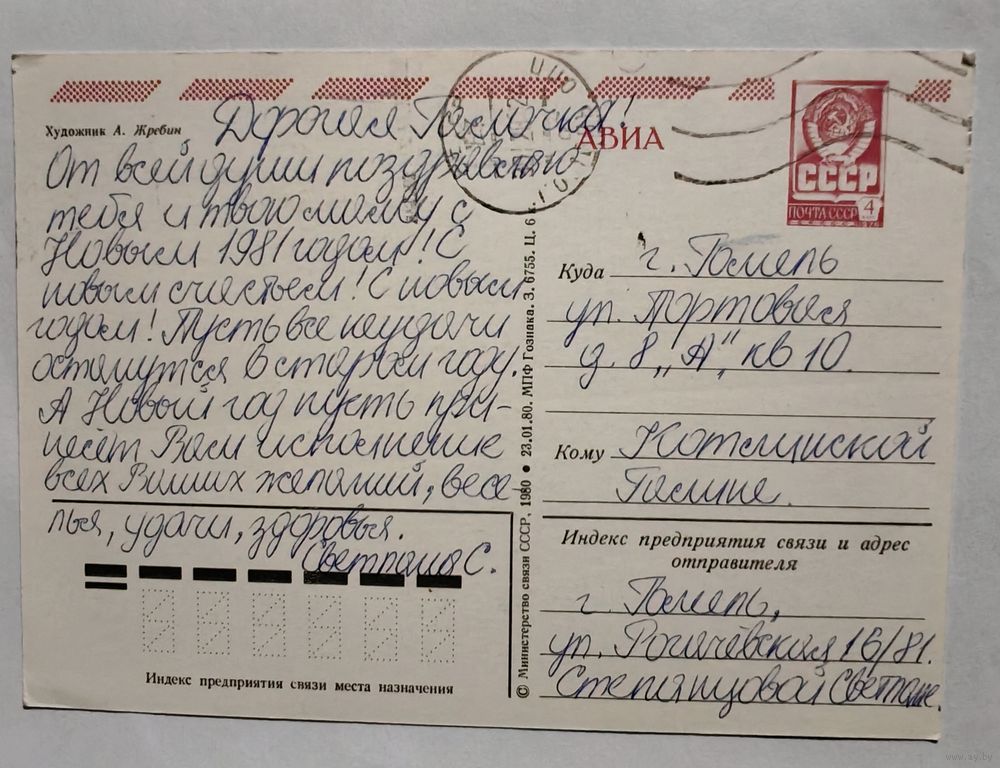 Художник А. Жребин
Дорогая Галочка!
От всей души поздравляю
тебя и твою маму с
Новым 1981 годом! С
новым счастьем! С новым
годом! Пусть все неудачи
останутся в старом году.
А Новый год пусть при-
несёт Вам исполнение
всех Ваших желаний, весе-
лья, удачи, здоровья.
Светлана С.
Индекс предприятия связи места назначения
© Министерство связи СССР, 1980 • 23.01.80. МПФ Гознака. З. 6755. Ц. 6 к.
АВИА
СССР
ПОЧТА СССР 4
Куда г. Гомель
ул. Портовая
д. 8 „А", кв 10.
Кому Котлинской
Галине.
Индекс предприятия связи и адрес
отправителя
г. Гомель,
ул. Рогачёвская 16/81.
Степанцовой Светлане.
www.ay.by